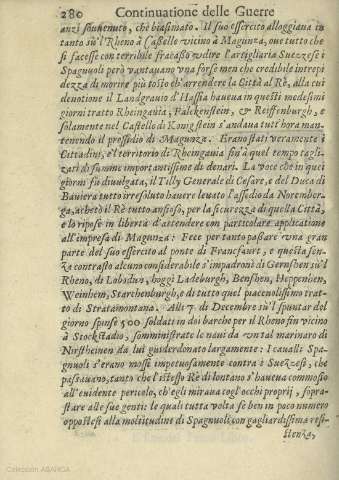 280 Continuatione delle Guerre
anzi souuenuto, che biasimato. Il suo essercito alloggiana in
tanto sù'l Rheno à Casselle vicino à Magunza, oue tutto che
si facesse con terribile fracasso vdire l'artigliaria Suezzese i
Spagnuoli però vantauano vna forse men che credibile intrepi
dezza di morire più tosto ch'arrendere la Città al Rè, alla cui
deuotione il Landgrauio d'Hassia haueua in questi medesimi
giorni tratto Rheingauia, Falckenstein, & Reiffenburgh, e
solamente nel Castello di Konigstein s'andaua tutt'hora man-
tenendo il presidio di Magunza. Erano stati veramente i
Cittadini, e'l territorio di Rheingauia fin à quel tempo tagliz-
zati di somme importantissime di denari. La voce che in quei
giorni fù diuulgata, il Tilly Generale di Cesare, e del Duca di
Bauiera tutto irresoluto hauere leuato l'assedio da Noremberga,
acchetò il Rè tutto ansioso, per la sicurezza di questa Città,
e lo ripose in libertà d'attendere con particolare applicatione
all'impresa di Magunza: Fece per tanto passare vna gran
parte del suo essercito al ponte di Francfuort, e questa sen-
za contrasto alcuno considerabile s'impadronì di Gernshen sù'l
Rheno, di Lobadus, hoggi Ladeburgh, Benshen, Heppenhen,
Weinhem, Starchenburgh, e di tutto quel piaceuolissimo trat-
to di Stratamontana. Alli 7 di Decembre sù'l spuntar del
giorno spinse 500 soldati in doi barche per il Rheno fin vicino
à Stockstadio, somministrate le naui da vn tal marinaro di
Nirstheinen da lui guiderdonato largamente: I caualli Spa-
gnuoli s'erano mossi impetuosamente contra i Suezzesi, che
passauano, tanto che l'istesso Rè di lontano s'haueua commosso
all'euidente pericolo, ch'egli miraua cogl'occhi proprij, sopra-
stare alle sue genti: le quali tutta volta se ben in poco numero
oppostesi alla moltitudine di Spagnuoli con gagliardissima resi-
stenza,
Colección ABARCA